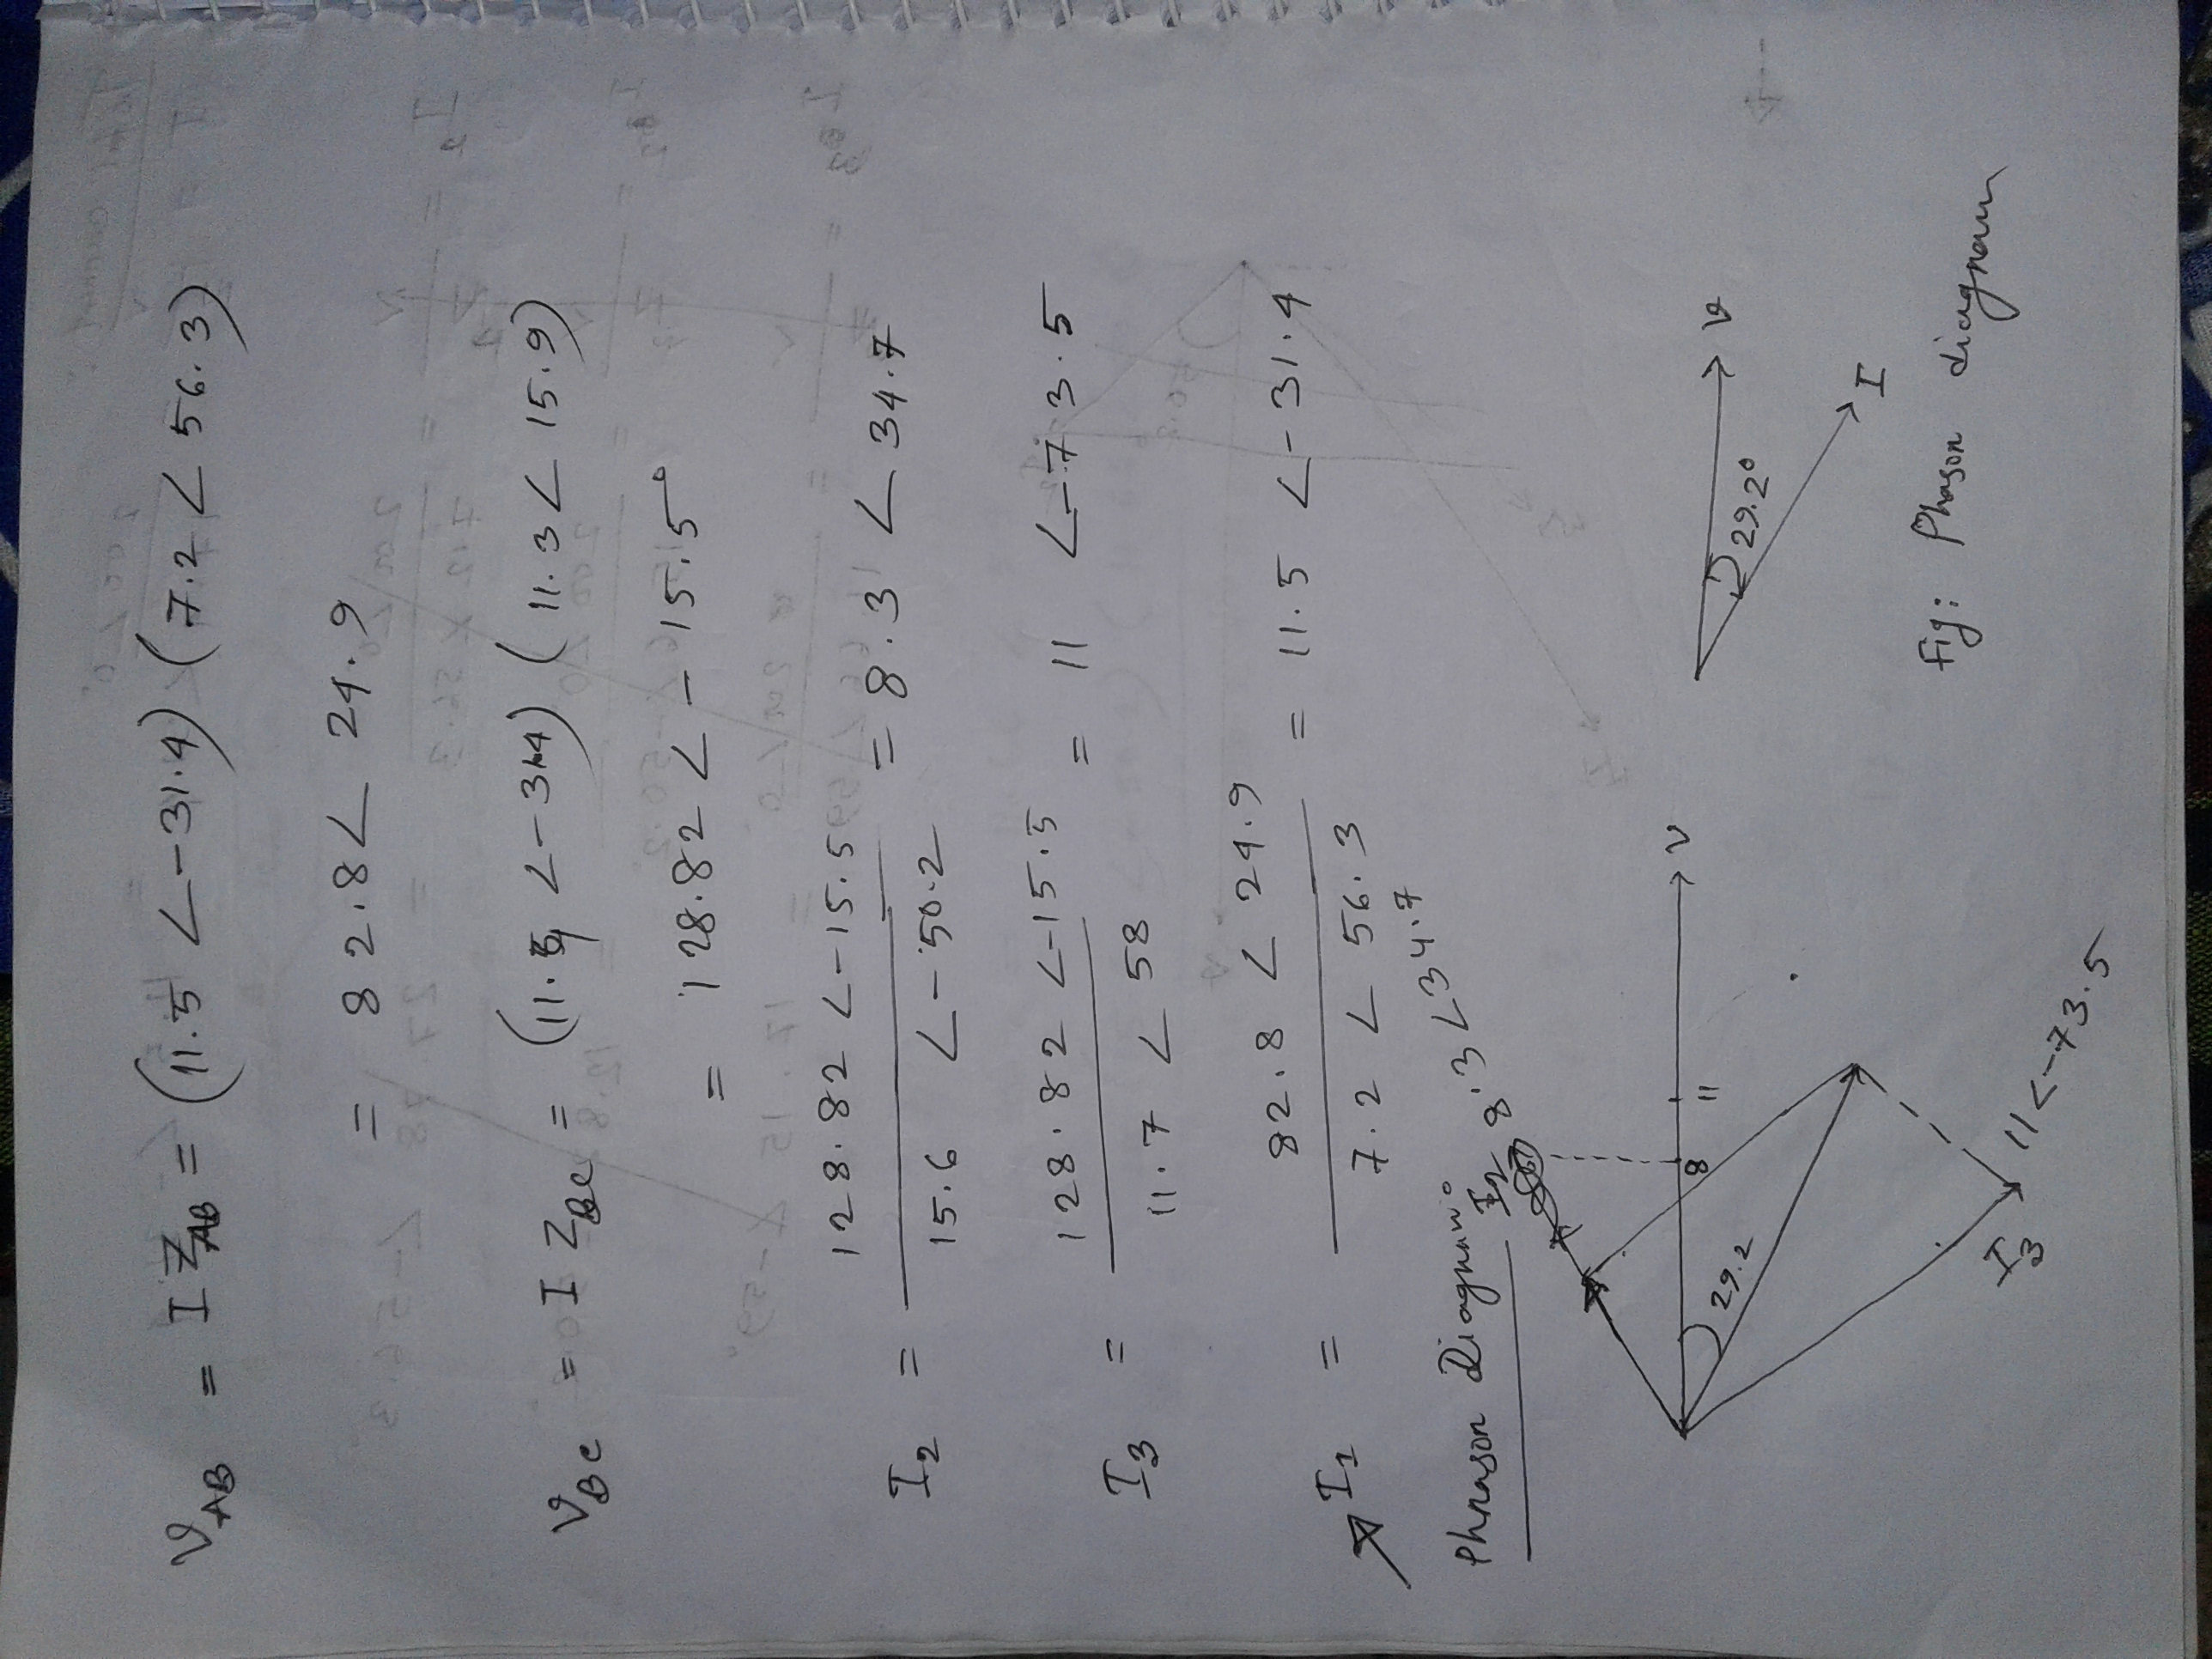 V_AB = I Z_AB = (11.5 ∠-31.4) (7.2 ∠ 56.3)
= 82.8 ∠ 24.9
V_BC = I Z_BC = (11.5 ∠-31.4) (11.3 ∠ 15.9)
= 128.82 ∠ - 15.5°
I_2 = 128.82 ∠-15.5 / 15.6 ∠-50.2 = 8.3 ∠ 34.7
I_3 = 128.82 ∠-15.5 / 11.7 ∠ 58 = 11 ∠-73.5
I_1 = 82.8 ∠ 24.9 / 7.2 ∠ 56.3 = 11.5 ∠-31.4
Phrason Diagram:
I_2 8.3 ∠34.7
8 11 V
29.2
I_3 11 ∠-73.5
V
29.2°
I
Fig: Phason diagram